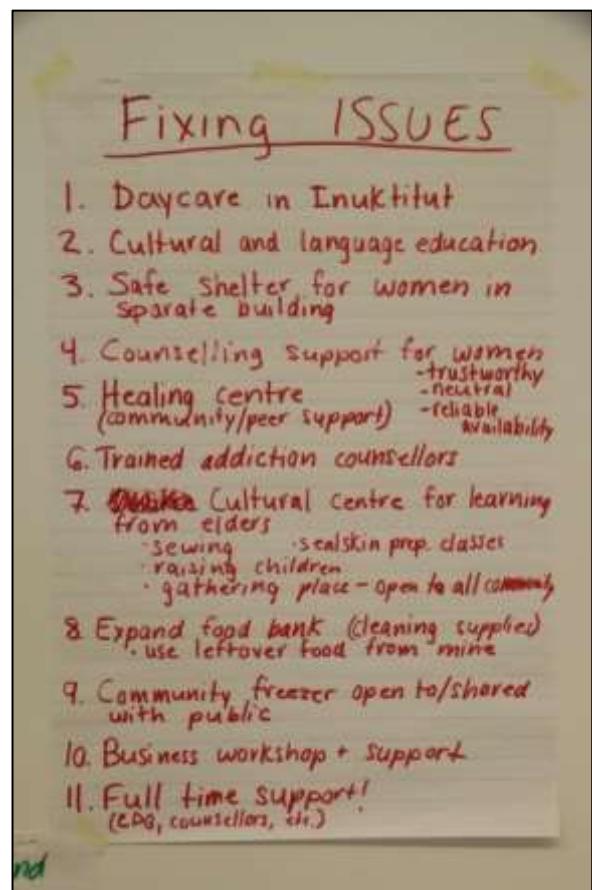 Fixing ISSUES
1. Daycare in Inuktitut
2. Cultural and language education
3. Safe shelter for women in
sparate building
4. Counselling support for women
-trustworthy
-neutral
-reliable
availability
5. Healing centre
(community/peer support)
6. Trained addiction counsellors
7. Cultural centre for learning
from elders
· sewing · sealskin prep. classes
· raising children
· gathering place - open to all
8. Expand food bank (cleaning supplies)
· use leftover food from mine
9. Community freezer open to/shared
with public
10. Business workshop + support
11. Full time support!
(EDO, counsellors, etc.)
nd